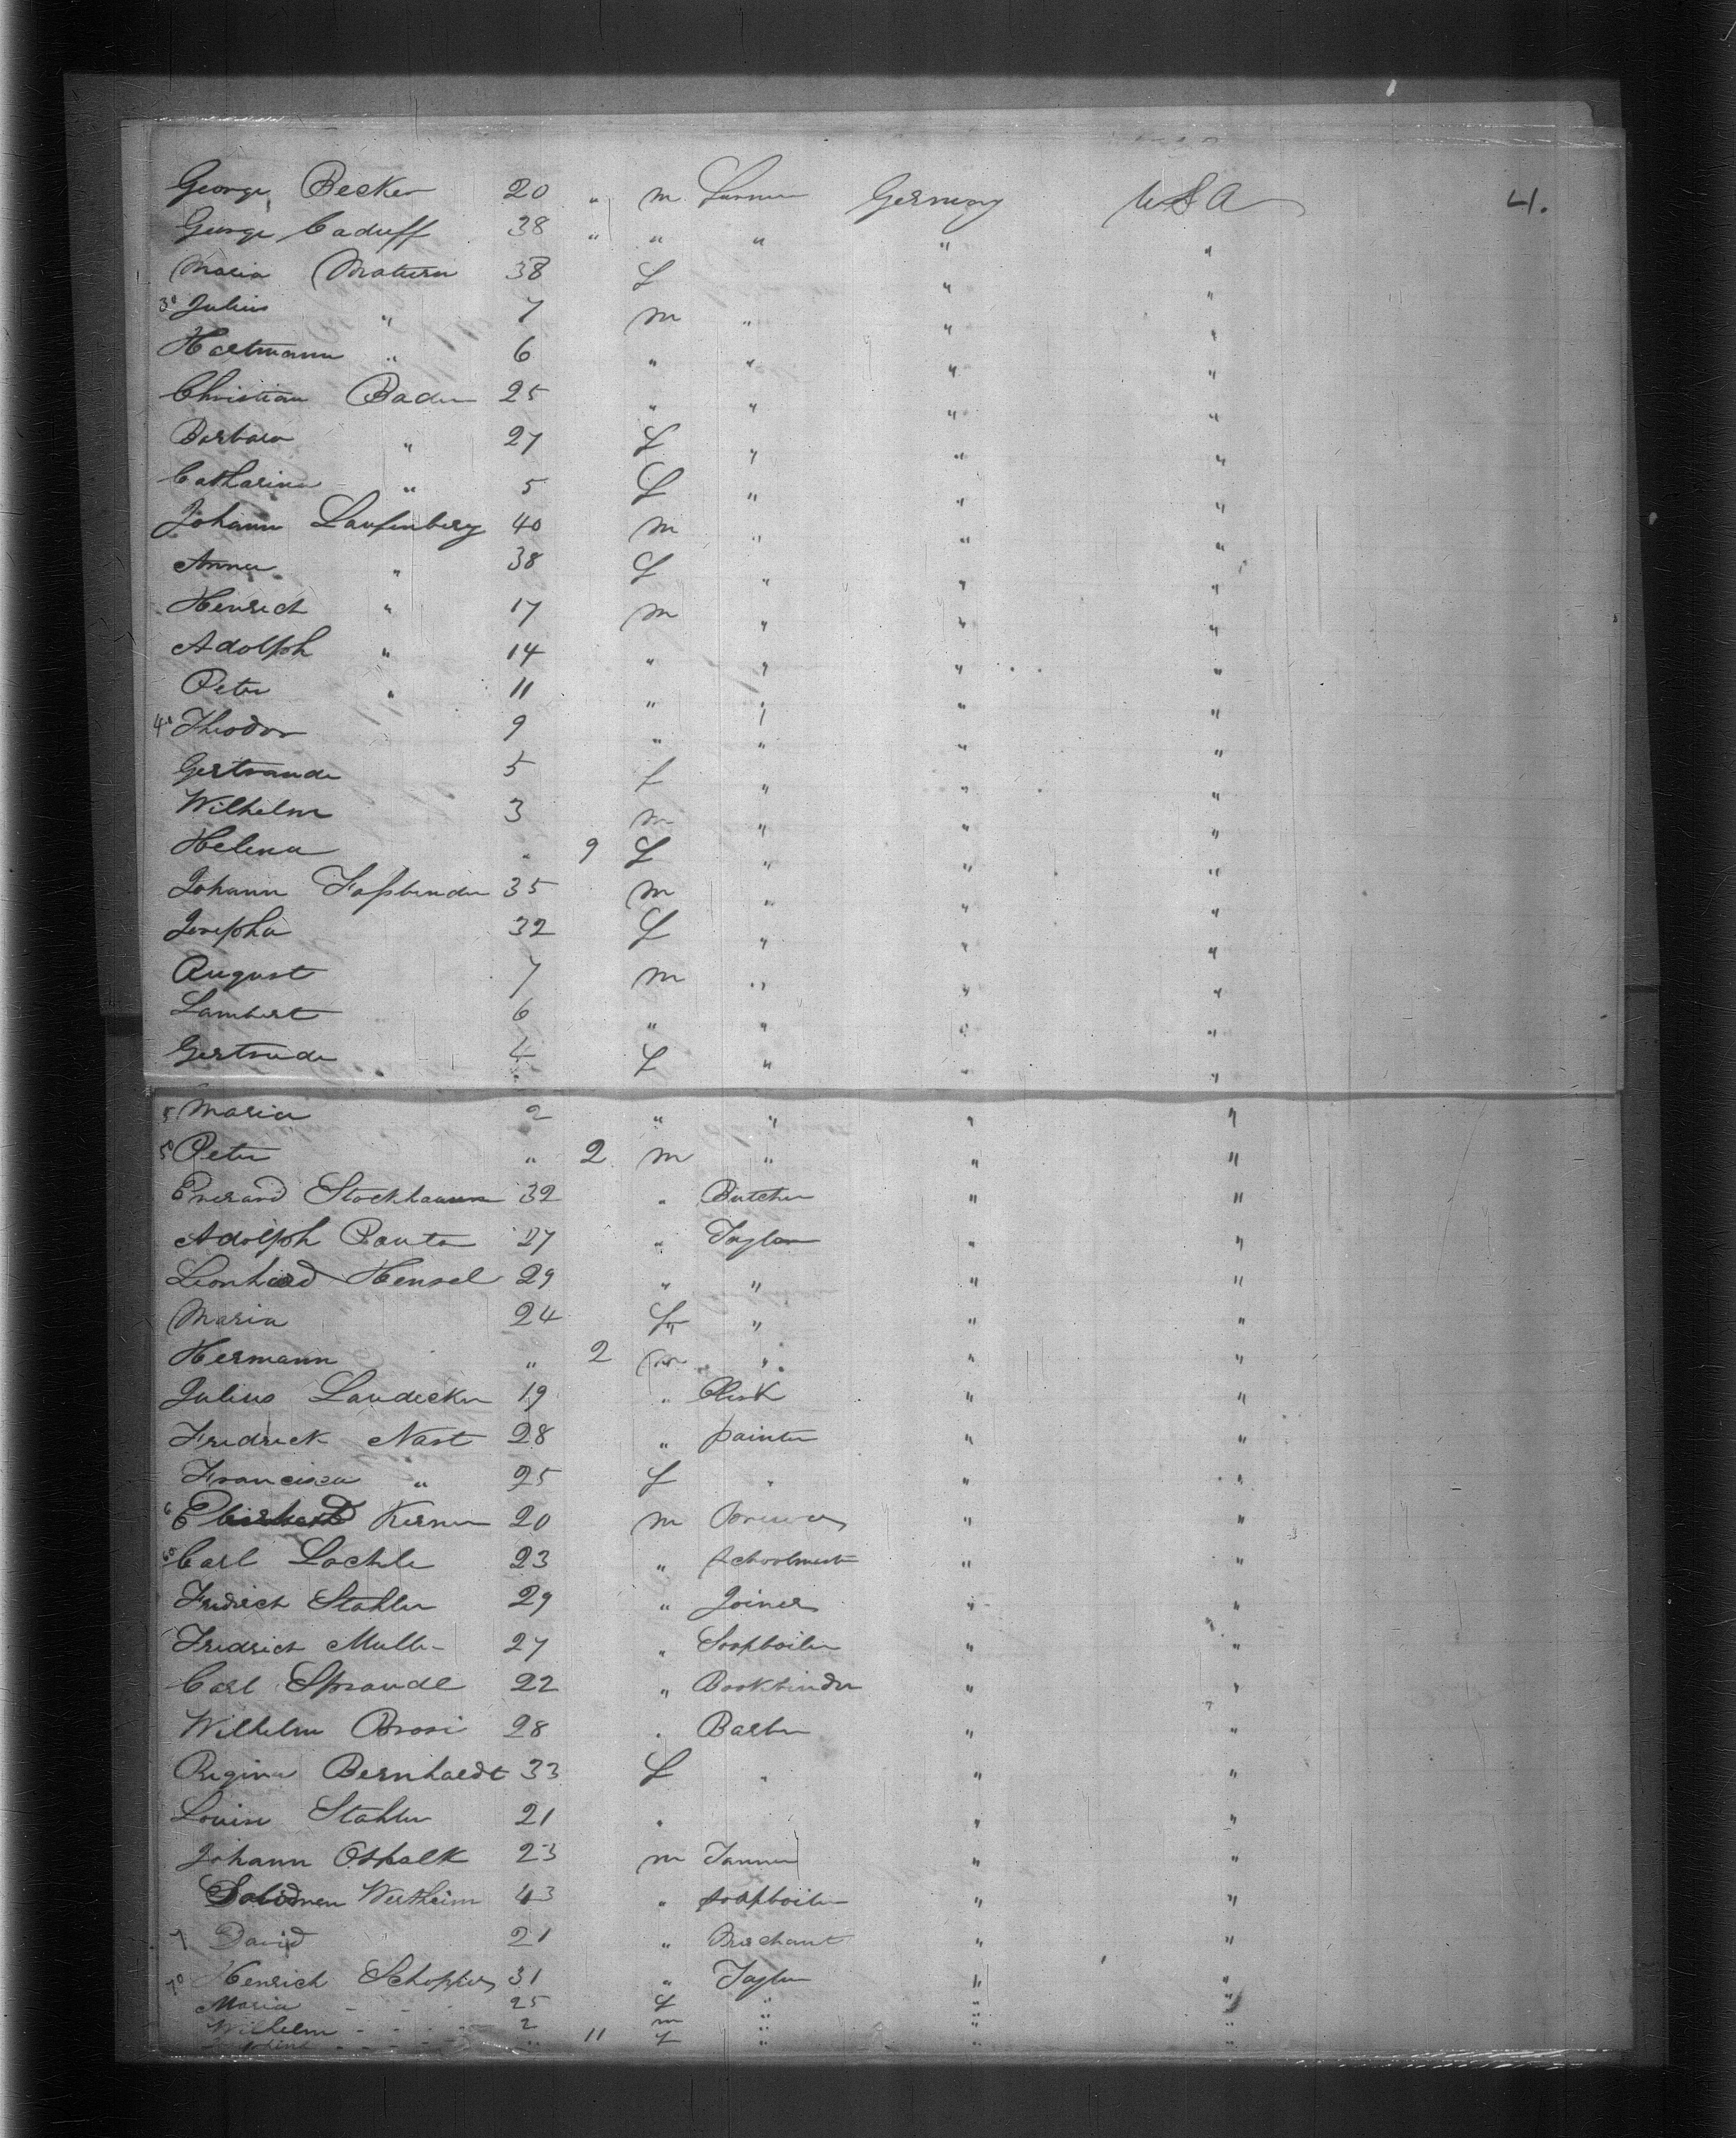 George Becker 20 " m Farmer Germny USA 4.
George Caduff 38 " " " " "
Maria Maturn 38 f " "
30 Julius " 7 m " " "
Hartmann " 6 " " " "
Christian Bader 25 " " " "
Barbara " 27 f " " "
Catharina " 5 f " " "
Johann Laufenberg 40 m " " "
Anna " 38 f " " "
Henrich " 17 m " " "
Adolph " 14 " " " "
Peter " 11 " " " "
40 Theodor 9 " " " "
Gertraude 5 f " " "
Wilhelm 3 m " " "
Helena " 9 f " " "
Johann Faßbinder 35 m " " "
Josepha 32 f " " "
August 7 m " " "
Lambert 6 " " " "
Gertrude 4 f " " "
5 Maria 2 " " " "
50 Peter " 2 m " " "
Everard Stockhausen 32 " Butcher " "
Adolph Pauta 27 " Taylor " "
Leonhard Hensel 29 " " " "
Maria 24 f " " "
Hermann " 2 m " " "
Julius Laudecker 19 " Clerk " "
Fredrick Nast 28 " painter " "
Francisca " 25 f " " "
6 Kerner 20 m Brewer " "
60 Carl Lochle 23 " Schoolmest " "
Fridrich Stahler 29 " Joiner " "
Fredrich Muller 27 " Soapboiler " "
Carl Sprandl 22 " Bookbinder " "
Wilhelm Brosi 28 " Barber " "
Regina Bernhardt 33 f " " "
Louise Stahler 21 " " "
Johann Ospalk 23 m Tanner " "
Salomen Wertheim 43 " soapboiler " "
7 David 21 " Merchant " "
70 Henrich Schopfer 31 " Taylor " "
Maria - - - 25 f " " "
Wilhelm - - - 2 m " " "
- - - " 11 f " " "